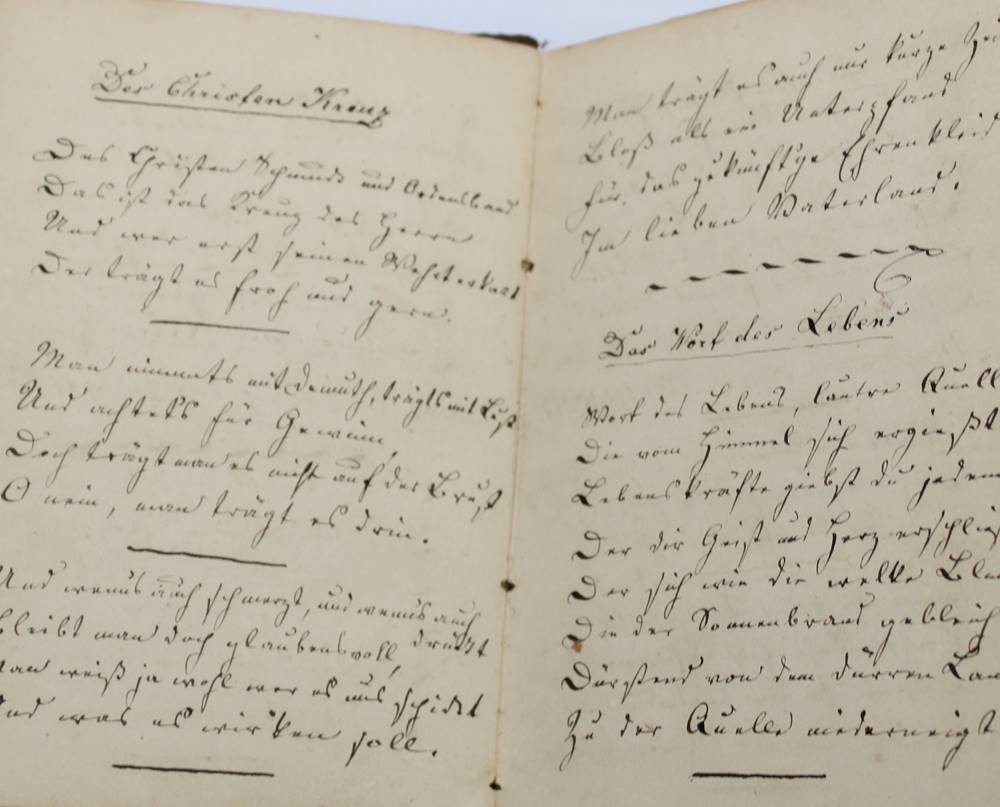 Des Christen Kreuz
Des Christen Schmuck und Ordensband
Das ist das Kreuz des Herrn
Und wer erst seinen Wehrt erkant
Der trägt es froh und gern.
Man nimmts mit Demuth, trägts mit Lust
Und achtet's für Gewinn,
Doch trägt man es nicht auf der Brust
O nein, man trägt es drin.
Und wenns auch schmerzt, und wenns auch drückt
Bleibt man doch glaubensvoll,
Man weiß ja wohl wer es uns schickt
Und was es wirken soll.
Man trägt es auch nur kurze Zei
Bloß als ein Unterpfand
Für das zukünft'ge Ehrenkleid
Im lieben Vaterland.
Das Wort des Lebens
Wort des Lebens, lautre Quell
Die vom Himmel sich ergießt
Lebenskräfte giebst du jedem
Der dir Geist und Herz erschließ
Der sich wie die welke Blu
Die der Sonnenbrand gebleich
Dürstend von dem dürren Lan
Zu der Quelle niederneigt